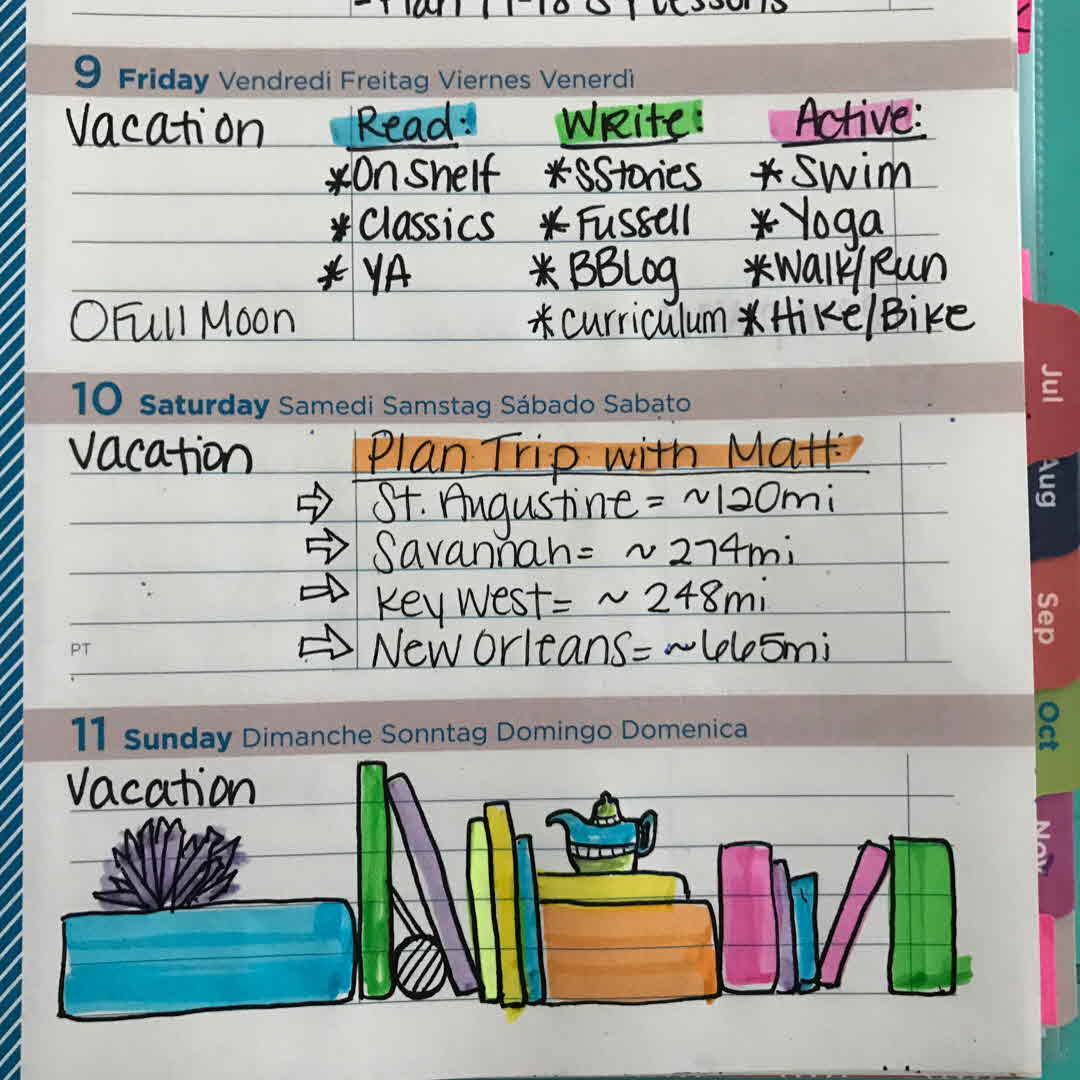 9 Friday Vendredi Freitag Viernes Venerdì
Vacation Read: Write: Active:
*On Shelf *SStories *Swim
*Classics *Fussell *Yoga
*YA *BBLog *Walk/Run
O Full Moon *Curriculum *Hike/Bike
10 Saturday Samedi Samstag Sábado Sabato
Vacation Plan Trip with Matt:
⇨ St. Augustine = ~120mi
⇨ Savannah = ~274mi
⇨ Key West = ~248mi
PT ⇨ New Orleans = ~665mi
11 Sunday Dimanche Sonntag Domingo Domenica
Vacation
Jul
Aug
Sep
Oct
Nov